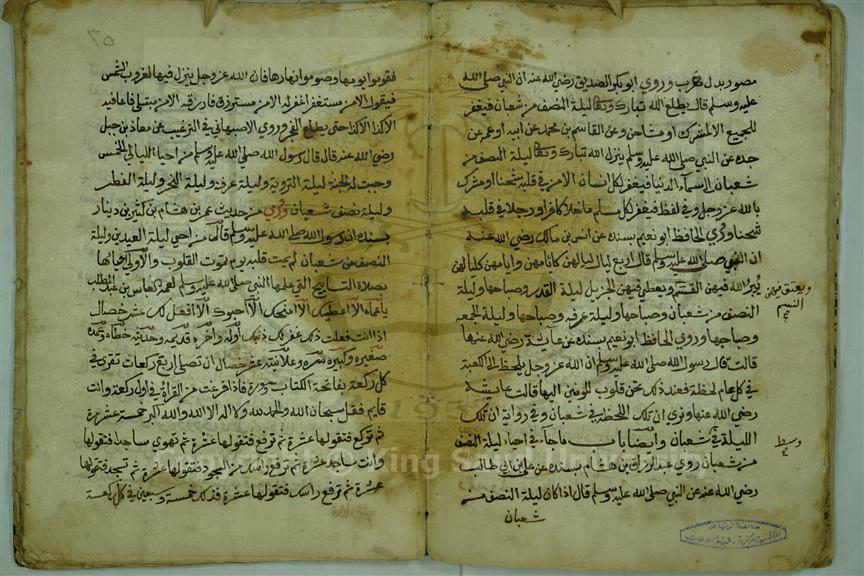 مصور بدل مغرب وروي ابو بكر الصديق رضي الله عنه ان النبي صلى الله
عليه وسلم قال يطلع الله تبارك وتعالى ليلة النصف من شعبان فيغفر
للجميع الا لمشرك او مشاحن وعن القاسم بن محمد عن ابيه او عمه عن
جده عن النبي صلى الله عليه وسلم ينزل الله تبارك وتعالى ليلة النصف من
شعبان الى السمآء الدنيا فيغفر لكل انسان الا من في قلبه شحنا او شرك
بالله عز وجل وفي لفظ فيغفر لكل مسلم ما خلا كافرا او رجلا في قلبه
شحنا وروي الحافظ ابو نعيم بسنده عن انس بن مالك رضي الله عنه
ان النبي صلى الله عليه وسلم قال اربع ليال لياليهن كايامهن وايامهن كلياليهن
يبر الله فيهن القسم ويعطي فيهن الجزيل ليلة القدر وصباحها وليلة
ويعتق فيهن
النسم
النصف من شعبان وصباحها وليلة عرفه وصباحها وليلة الجمعه
وصباحها وروي الحافظ ابو نعيم بسنده عن عآيشة رضي الله عنها
قالت قال رسول الله صلى الله عليه وسلم ان الله عز وجل يلحظ الى الكعبة
في كل عام لحظة فعند ذلك تحن قلوب المومنين اليها قالت عايشة
رضي الله عنها ونري ان تلك اللحظة في شعبان وفي رواية ان تلك
الليلة في شعبان وايضا باب ما جآء في احياء ليلة النصف
وسط
من شعبان روي عبد الرزاق بن هشام بسنده عن علي بن ابي طالب
رضي الله عنه عن النبي صلى الله عليه وسلم قال اذا كان ليلة النصف من
شعبان
فقوموا ليلها وصوموا نهارها فان الله عز وجل ينزل فيها لغروب الشمس
فيقول الا من مستغفر اغفر له الا من مسترزق فارزقه الا من مبتلى فاعافيه
الا كذا الا كذا حتى يطلع الفجر وروي الاصبهاني في الترغيب عن معاذ بن جبل
رضي الله عنه قال قال رسول الله صلى الله عليه وسلم من احيا الليالي الخمس
وجبت له الجنة ليلة التروية وليلة عرفه وليلة النحر وليلة الفطر
وليلة نصف شعبان وروي من حديث عمر بن هشام بن كثير بن دينار
بسنده ان رسول الله صلى الله عليه وسلم قال من احيى ليلة العيدين وليلة
النصف من شعبان لم يمت قلبه يوم تموت القلوب والاولى احياها
بصلاة التسابيح التي علمها النبي صلى الله عليه وسلم لعمه العباس بن عبد المطلب
يا عماه الا اعطيك الا امنحك الا احبوك الا افعل لك عشر خصال
اذا انت فعلت ذلك غفر لك ذنبك اوله واخره قديمه وحديثه خطأه وعمده
صغيره وكبيره سره وعلانيته عشر خصال ان تصلي اربع ركعات تقرئ في
كل ركعة بفاتحة الكتاب وسورة فاذا فرغت من القرآة في اول ركعة وانت
قايم فقل سبحان الله والحمد لله ولا اله الا الله والله اكبر خمسة عشر مرة
ثم تركع فتقولها عشرة ثم ترفع فتقولها عشرة ثم تهوي ساجدا فتقولها
وانت ساجد عشرة ثم ترفع راسك من السجود فتقولها عشرة ثم تسجد فتقولها
عشرة ثم ترفع راسك فتقولها عشرة فذلك خمسة وسبعين في كل ركعة